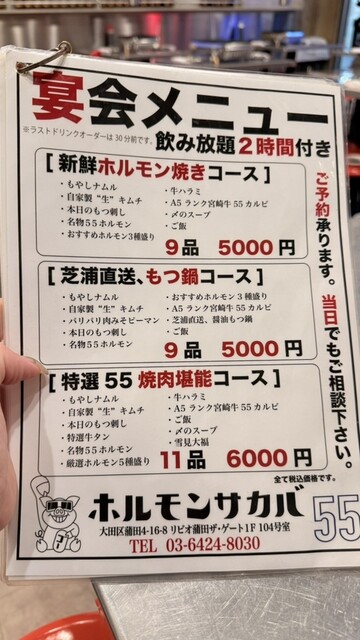 宴会メニュー
※ラストドリンクオーダーは30分前です。
飲み放題2時間付き
[新鮮ホルモン焼きコース]
・もやしナムル
・自家製"生"キムチ
・本日のもつ刺し
・名物55ホルモン
・おすすめホルモン3種盛り
・牛ハラミ
・A5ランク宮崎牛55カルビ
・〆のスープ
・ご飯
9品 5000円
[芝浦直送、もつ鍋コース]
・もやしナムル
・自家製"生"キムチ
・パリパリ肉みそピーマン
・本日のもつ刺し
・名物55ホルモン
・おすすめホルモン3種盛り
・A5ランク宮崎牛55カルビ
・芝浦直送、醤油もつ鍋
・ご飯
9品 5000円
[特選55焼肉堪能コース]
・もやしナムル
・自家製"生"キムチ
・本日のもつ刺し
・特選牛タン
・名物55ホルモン
・厳選ホルモン5種盛り
・牛ハラミ
・A5ランク宮崎牛55カルビ
・ご飯
・〆のスープ
・雪見大福
11品 6000円
ご予約承ります。当日でもご相談下さい。
全て税込価格です。
ホルモンサカバ55
大田区蒲田4-16-8 リビオ蒲田ザ・ゲート1F 104号室
TEL 03-6424-8030